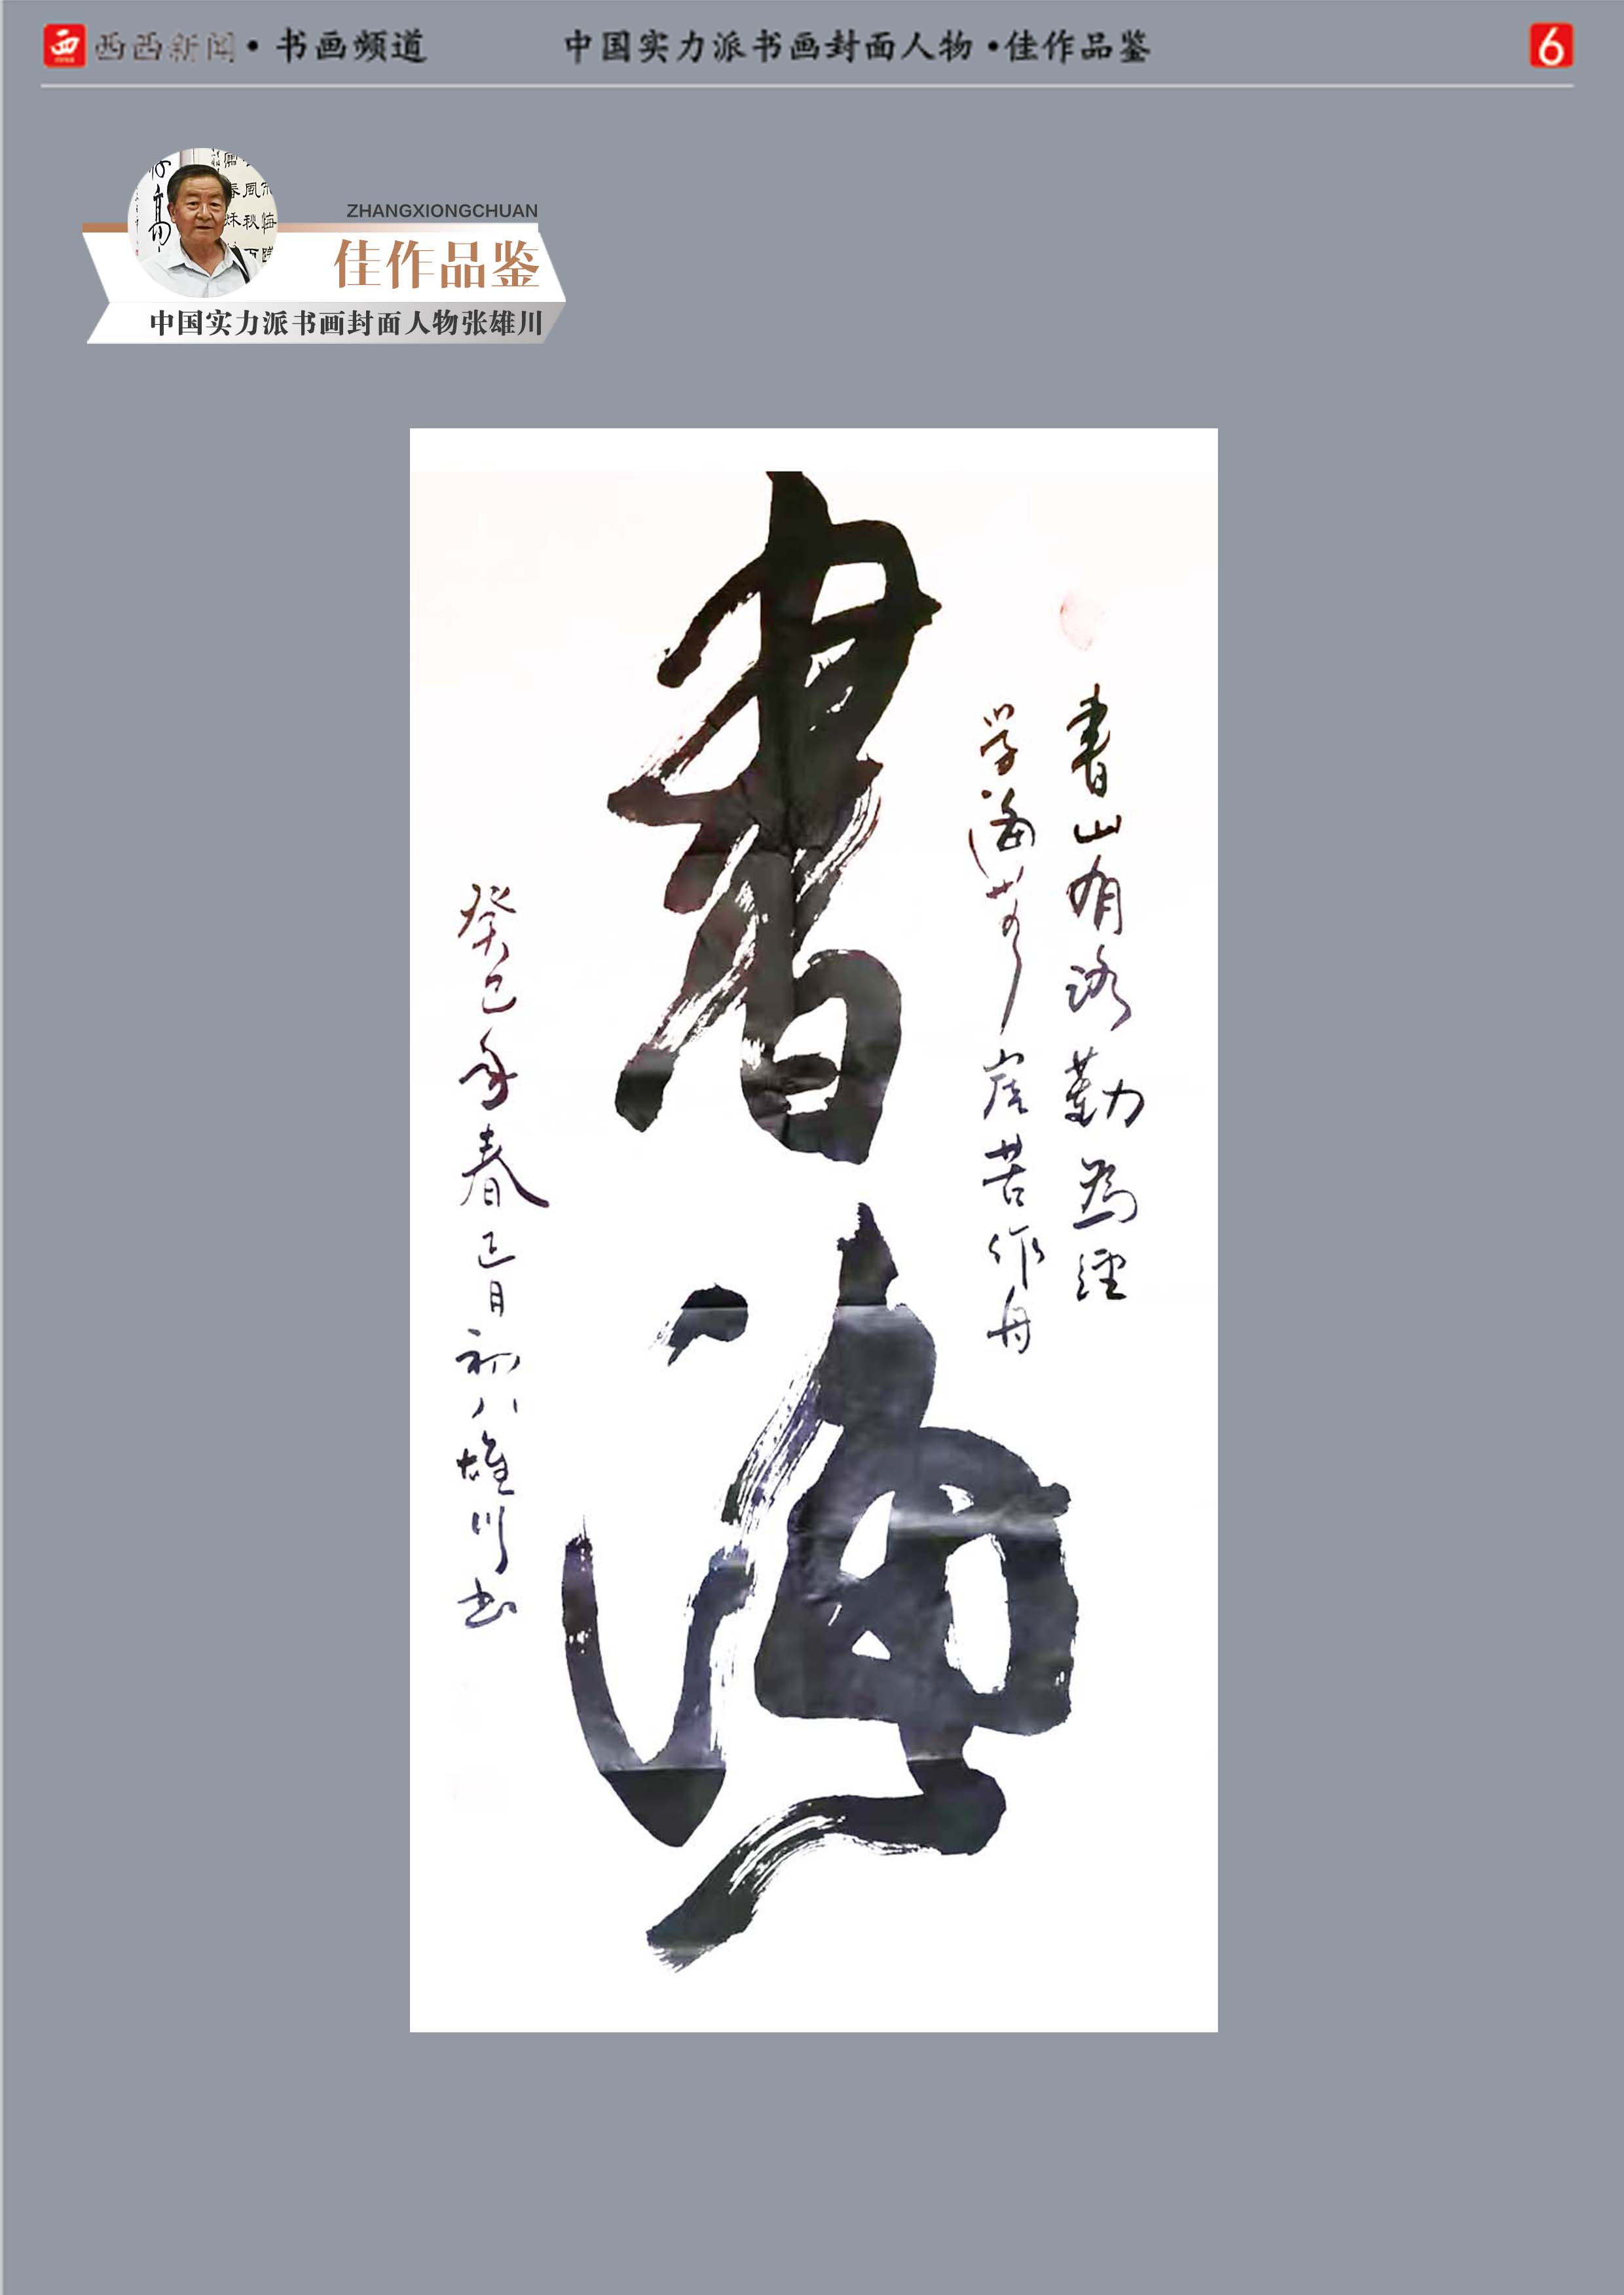 西西新闻•书画频道
中国实力派书画封面人物•佳作品鉴
6
ZHANGXIONGCHUAN
佳作品鉴
中国实力派书画封面人物张雄川
書山有路勤為徑
学海無崖苦作舟
書海
癸巳年春正月初八雄川书